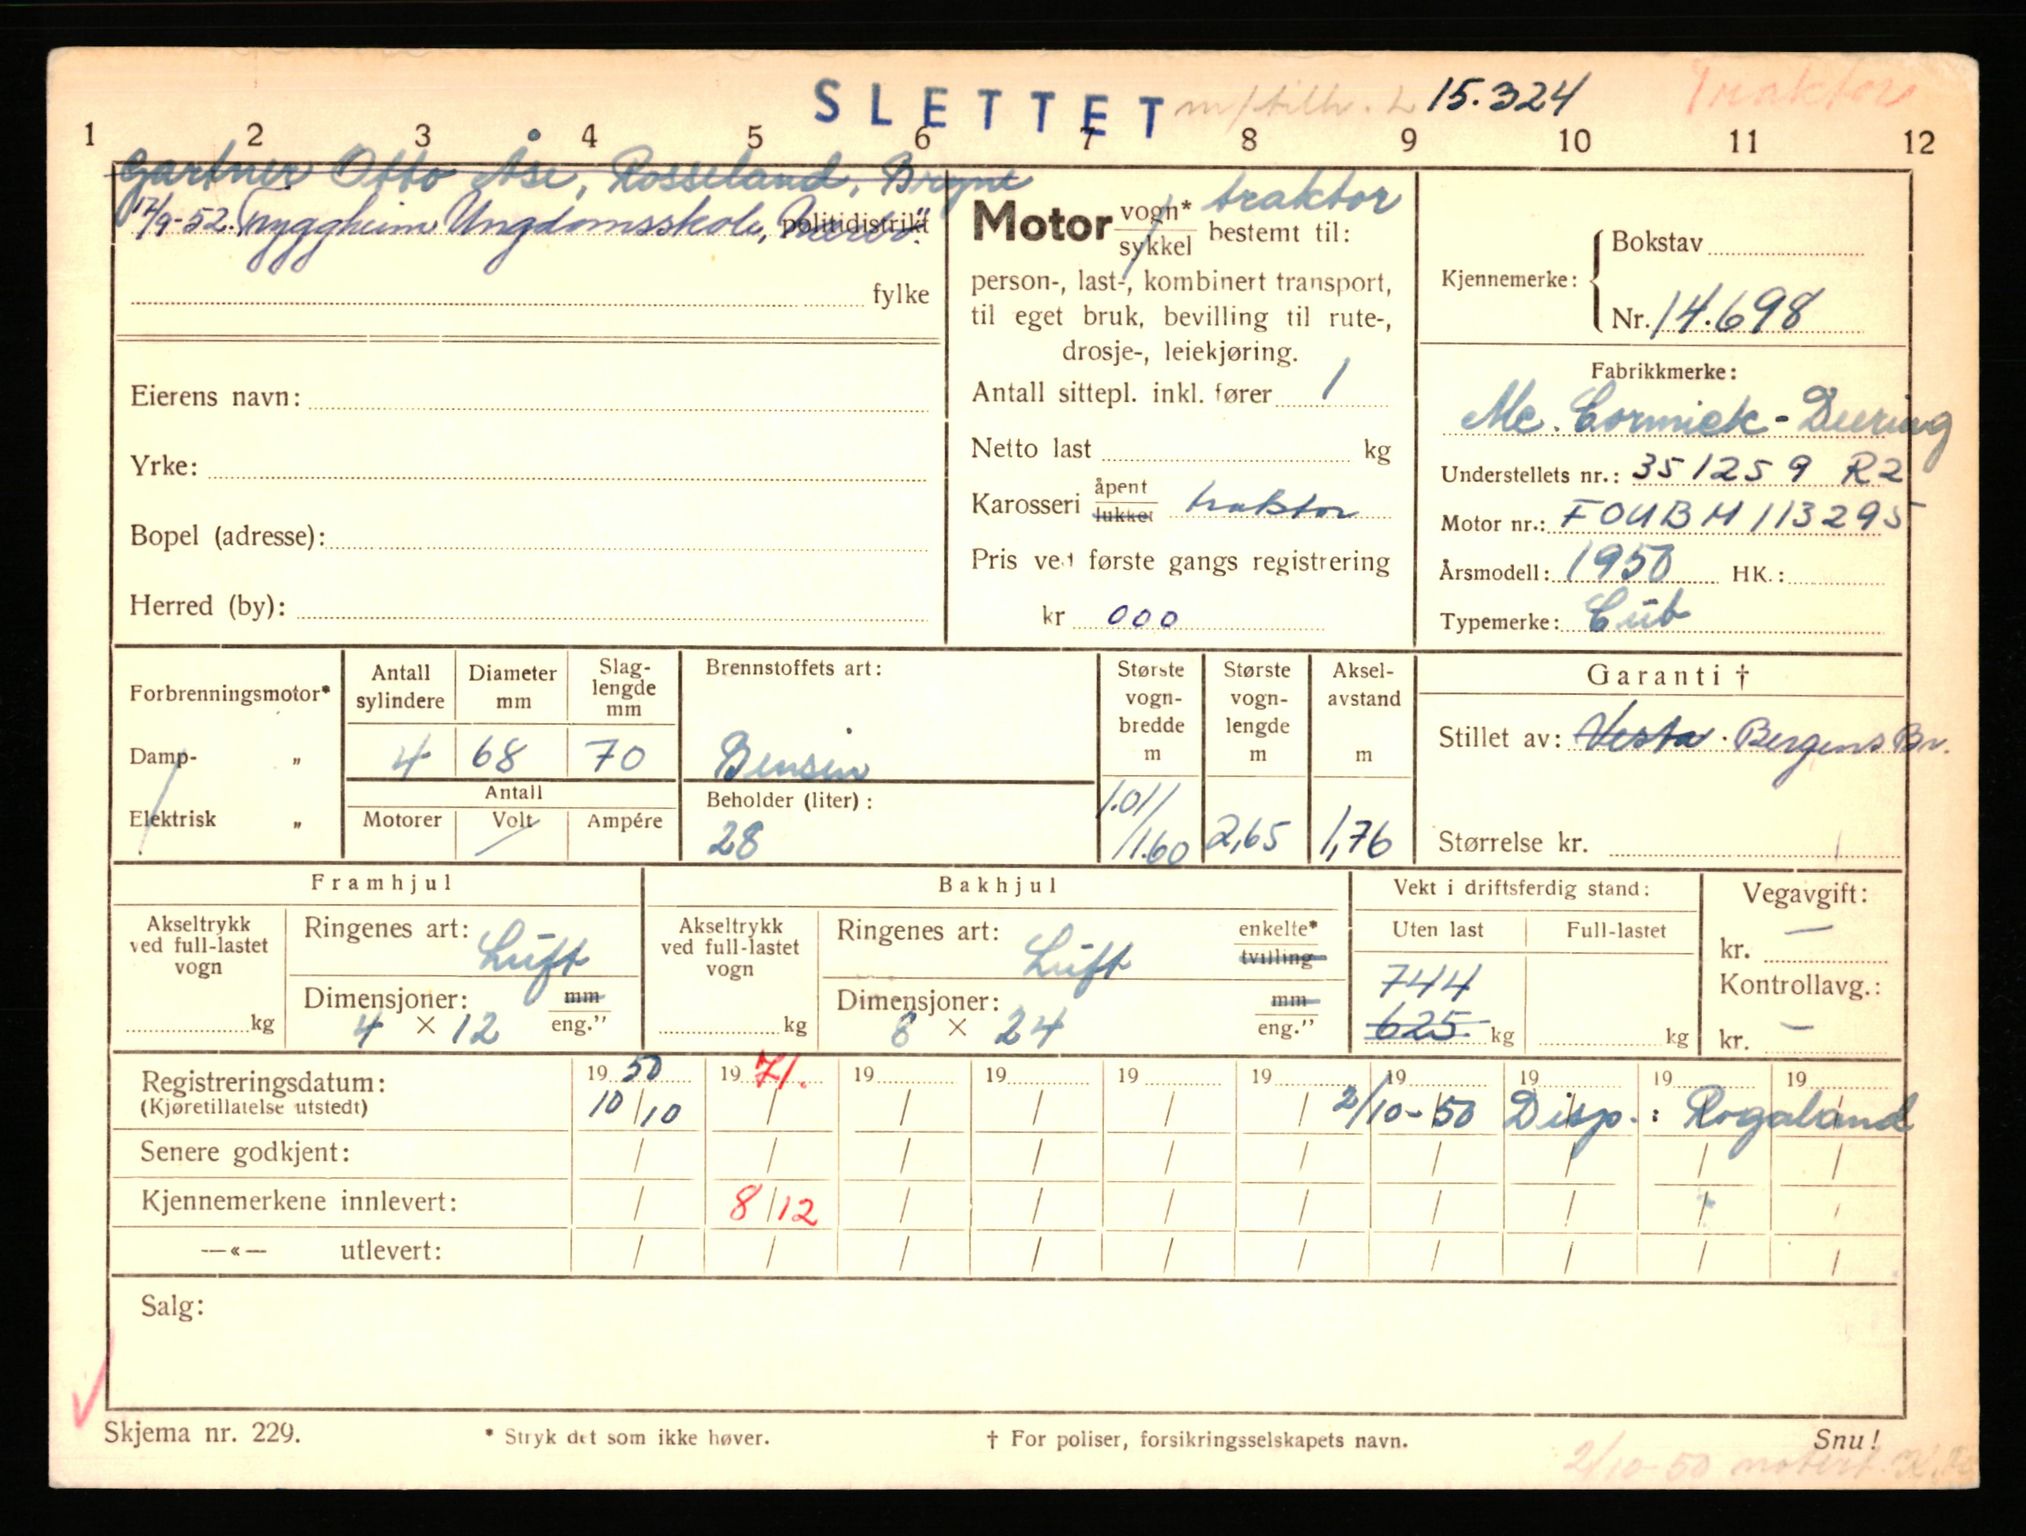 SLETTET m/tilh. L 15.324 Traktor
1 2 3 4 5 6 7 8 9 10 11 12
Gartner Otto Åse, Rosseland, Bryne
12/9-52. Tryggheim Ungdomsskole, Nærbø. politidistrikt
fylke
Eierens navn:
Yrke:
Bopel (adresse):
Herred (by):
Motor vogn* traktor
sykkel bestemt til:
person-, last-, kombinert transport,
til eget bruk, bevilling til rute-,
drosje-, leiekjøring.
Antall sittepl. inkl. fører 1
Netto last kg
Karosseri åpent traktor
lukket
Pris ved første gangs registrering
kr 000
Kjennemerke: Bokstav
Nr. 14.698
Fabrikkmerke:
Mc. Cormick-Deering
Understellets nr.: 351259 R2
Motor nr.: FOUBM113295
Årsmodell: 1950 HK.:
Typemerke: Cub
Forbrenningsmotor*
Damp- „
Elektrisk „
Antall sylindere
Diameter mm
Slag-lengde mm
4 68 70
Antall
Motorer Volt Ampére
Brennstoffets art:
Bensin
Beholder (liter):
28
Største vogn-bredde m
1.01/
/1.60
Største vogn-lengde m
2,65
Aksel-avstand m
1,76
Garanti †
Stillet av: Vesta. Bergens Br.
Størrelse kr.
Framhjul
Akseltrykk ved full-lastet vogn
kg
Ringenes art: Luft
Dimensjoner: mm
4 × 12 eng."
Bakhjul
Akseltrykk ved full-lastet vogn
kg
Ringenes art: Luft enkelte*
tvilling
Dimensjoner: mm
8 × 24 eng."
Vekt i driftsferdig stand:
Uten last Full-lastet
744
625 kg kg
Vegavgift:
kr. —
Kontrollavg.:
kr. —
Registreringsdatum: 19 50 19 71. 19 19 19 19 19 19 19 19
(Kjøretillatelse utstedt) 10/10 / / / / / 2/10-50 Disp.: Rogaland
Senere godkjent: / / / / / / / / / /
Kjennemerkene innlevert: / 8/12 / / / / / / / /
—«— utlevert: / / / / / / / / / /
Salg:
Skjema nr. 229.
* Stryk det som ikke høver.
† For poliser, forsikringsselskapets navn.
Snu!
2/10-50 notert.